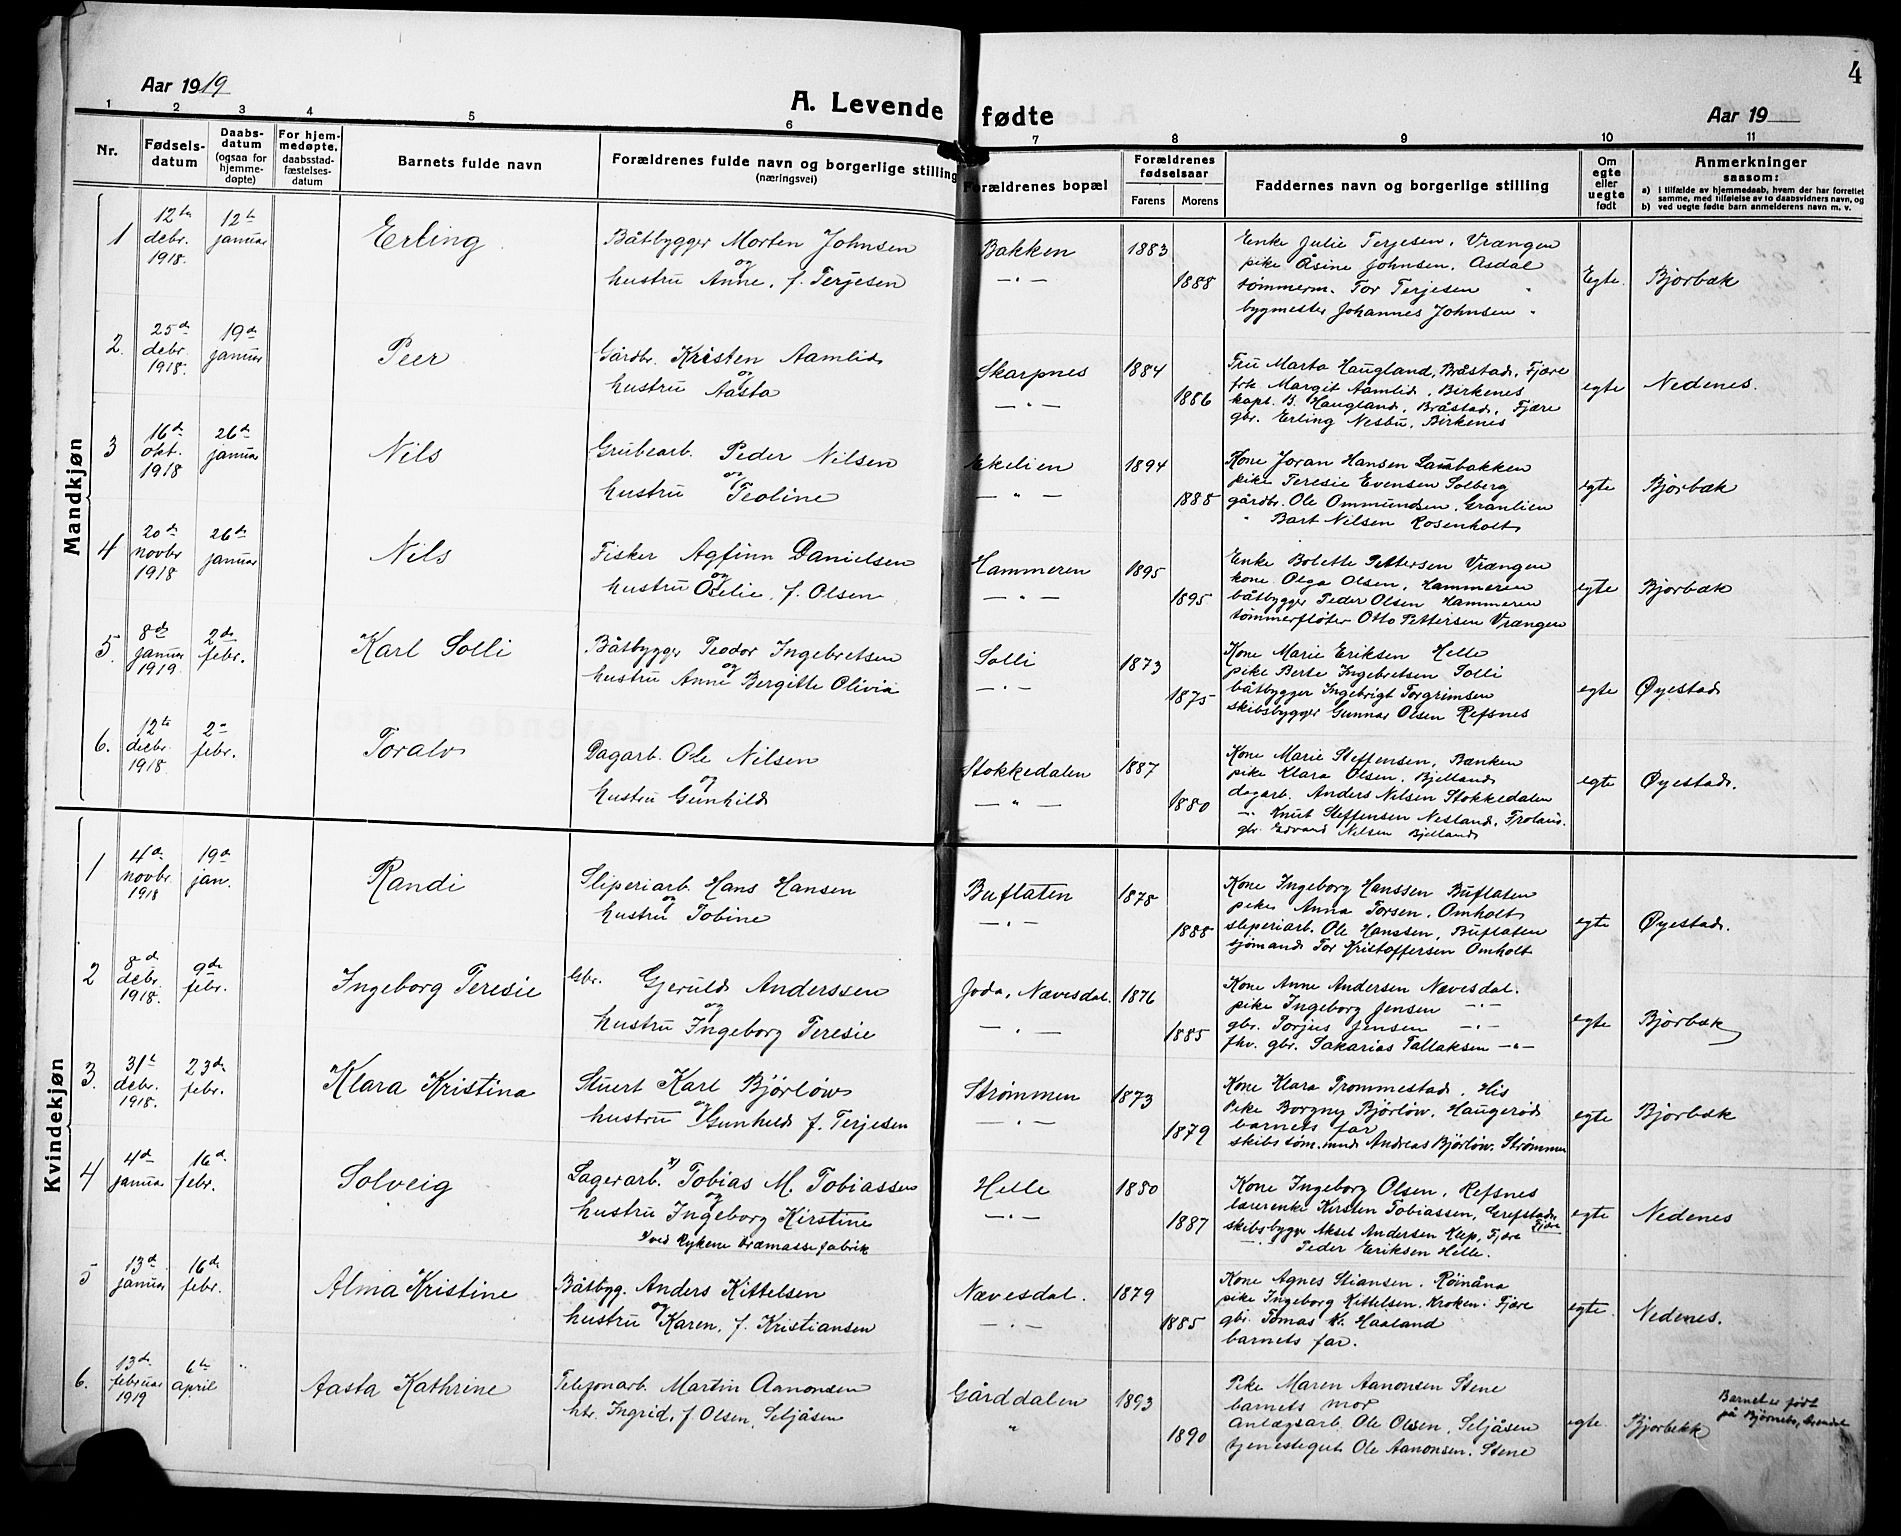 4
Aar 1919
A. Levende fødte
Aar 19
1 2 3 4 5 6 7 8 9 10 11
Nr.
Fødsels-
datum
Daabs-
datum
(ogsaa for
hjemme-
døpte)
For hjem-
medøpte.
daabsstad-
fæstelses-
datum
Barnets fulde navn
Forældrenes fulde navn og borgerlige stilling
(næringsvei)
Forældrenes bopæl
Forældrenes
fødselsaar
Farens Morens
Faddernes navn og borgerlige stilling
Om
egte
eller
uegte
født
Anmerkninger
saasom:
a) i tilfælde av hjemmedaab, hvem der har forrettet
samme, med tilføielse av to daabsvidners navn, og
b) ved uegte fødte barn anmelderens navn m. v.
Mandkjøn
1
12te
debr.
1918.
12te
januar
Erling
Båtbygger Morten Johnsen
og
hustru Anne, f. Terjesen
Bakken
— " —
1883
1888
Enke Julie Terjesen, Vrængen
pike Åsine Johnsen, Asdal
tømmerm. Tor Terjesen "
bygmester Johannes Johnsen "
Egte.
Bjorbæk
2.
25de
debr.
1918.
19de
januar
Peer
Gårdbr. Kristen Aamlid
og
hustru Aasta
Skarpnes
— " —
1884
1886
Fru Marta Haugland, Bråstad, Fjære
frk. Margit Aamlid, Birkenes
kapt. B. Haugland, Bråstad, Fjære
gbr. Erling Nesbu, Birkenes
egte
Nedenes.
3
16de
okt.
1918
26de
januar
Nils
Grubearb. Peder Nilsen
og
hustru Teoline
Ekelien
— " —
1894
1885
Kone Joran Hansen
pike Teresie Evensen Solberg
gårdbr. Ole Ommundsen, Granlien
" Bart Nilsen Rosenholt
egte
Bjorbæk
4
20de
novbr
1918
26de
januar
Nils
Fisker Agfinn Danielsen
og
hustru Otelie, f. Olsen
Hammeren
— " —
1895
1895
Enke Bolette Pettersen Vrængen
kone Olga Olsen, Hammeren
båtbygger Peder Olsen Hammeren
tømmerfløter Otto Pettersen Vrængen
egte
Bjorbæk
5.
8de
januar
1919
2de
febr.
Karl Solli
Båtbygger Teodor Ingebretsen
og
hustru Anne Bergitte Olivia
Solli
— " —
1873
1875
Kone Marie Eriksen Helle
pike Berte Ingebretsen Solli
båtbygger Ingebrigt Torgrimsen
skibsbygger Gunnar Olsen Refsnes
egte
Øyestad
6.
12te
debr.
1918
2den
febr.
Toralv
Dagarb. Ole Nilsen
og
hustru Gunhild
Stokkedalen
— " —
1887
1880
Kone Marie Steffensen, Bænken
pike Klara Olsen, Bjelland
dagarb. Anders Nilsen Stokkedalen
— " Knut Steffensen Nesland, Frolans.
gbr. Edvard Nilsen Bjelland
egte
Øyestad.
Kvindekjøn
1
4de
novbr.
1918
19de
jan.
Randi
Sliperiarb. Hans Hansen
og
hustru Tobine
Buflaten
— " —
1878
1888
Kone Ingeborg Hanssen Buflaten
pike Anna Torsen, Omholt
sliperiarb. Ole Hanssen, Buflaten
sjømand Tor Kristoffersen Omholt
egte
Øyestad.
2
8de
debr.
1918.
9de
febr.
Ingeborg Teresie
Gbr. Gjeruld Anderssen
og
hustru Ingeborg Teresie
Joda, Nævesdal.
— " —
1876
1885
Kone Anne Andersen Nævesdal.
pike Ingeborg Jensen — " —
gbr. Torjus Jensen — " —
fhv. gbr. Sakarias Tallaksen — " —
egte
Bjorbæk
3.
31te
debr.
1918.
23de
febr.
Klara Kristina
Stuert Karl Bjørløw
og
hustru Gunhild f. Terjesen
Strømmen
— " —
1873
1879
Kone Klara Trommestad, His
Pike Borgny Bjørløw, Haugerød
barnets far
skibstøm.mnd Andreas Bjørløw, Strømmen
egte
Bjorbæk
4
4de
januar
16de
febr.
Solveig
Lagerarb. x) Tobias M. Tobiassen
og
hustru Ingeborg Kirstine
x/ ved Rykene træmassefabrik
Helle
— " —
1880
1887
Kone Ingeborg Olsen, Refsnes
lærerenke Kirsten Tobiassen, Grefstad, Fjære
skibsbygger Aksel Andersen Klep, Fjære
— " — Peder Eriksen Helle.
egte
Nedenes
5
13de
januar
16de
febr.
Alma Kristine
Båtbyg. Anders Kittelsen
og
hustru Karen, f. Kristiansen
Nævesdal.
— " —
1879
1885
Kone Agnes Stiansen. Røinåna
pike Ingeborg Kittelsen, Kroken, Fjære
gbr. Tomas K. Haaland
barnets far.
egte.
Nedenes.
6.
13de
februar
1919
6te
april
"
Aasta Kathrine
Telefonarb. Martin Aanonsen
htr. Ingrid, f. Olsen, Seljåsen
Gårddalen
"
1893
1890
Pike Maren Aanonsen Stene
barnets mor
anlægsarb. Ole Olsen, Seljåsen
tjenestegut Ole Aanonsen, Stene
egte.
Bjorbekk
Barnet er født
på Bjørnebo, Arendal